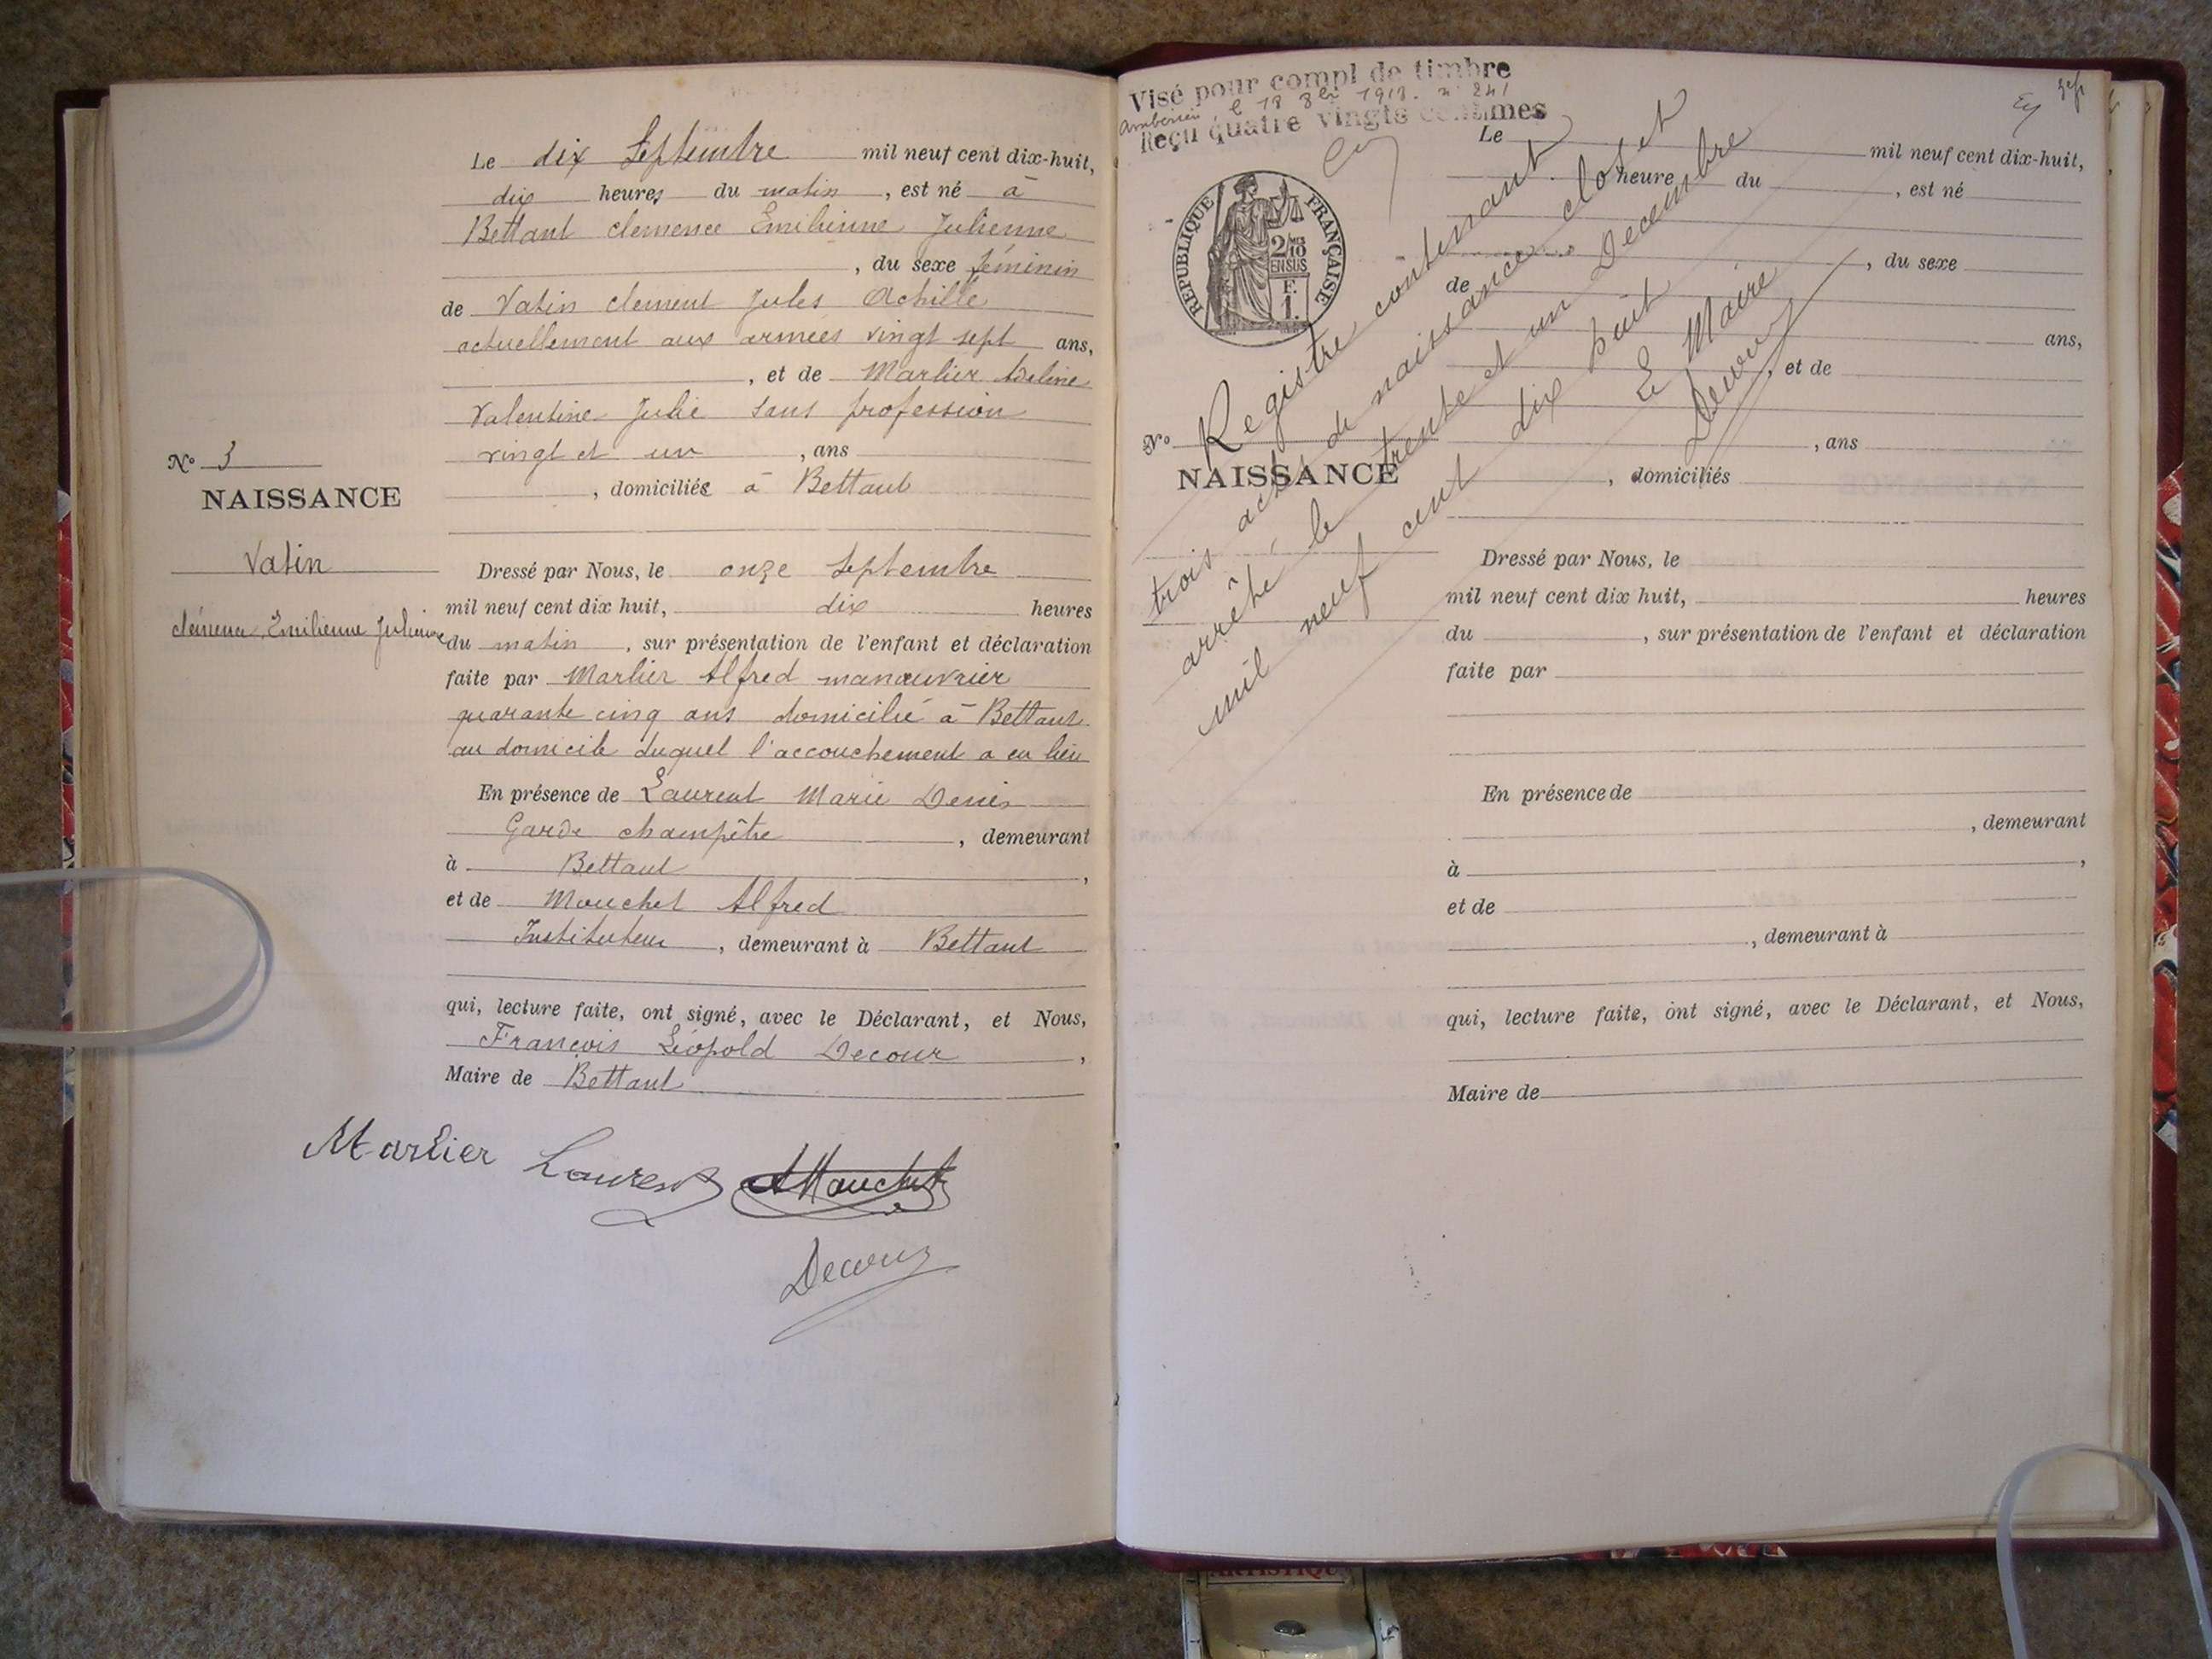 Le dix Septembre mil neuf cent dix-huit,
dix heures du matin, est né à
Bettant clemence Emilienne Julienne
, du sexe féminin
de Vatin clement Jules Achille
actuellement aux armées vingt sept ans,
, et de Marlier Adeline
Valentine Julie sans profession
vingt et un, ans
, domiciliés à Bettant
N° 3
NAISSANCE
Vatin
clémence Emilienne Julienne
Dressé par Nous, le onze Septembre
mil neuf cent dix huit, dix heures
du matin, sur présentation de l'enfant et déclaration
faite par Marlier Alfred manœuvrier
quarante cinq ans domicilié à Bettant
au domicile duquel l'accouchement a eu lieu
En présence de Laurent Marie Denis
Garde champêtre, demeurant
à Bettant,
et de Mouchet Alfred
Instituteur, demeurant à Bettant
qui, lecture faite, ont signé, avec le Déclarant, et Nous,
François Léopold Decour,
Maire de Bettant
Marlier Laurent AMouchet
Decour
Visé pour compl de timbre
le 18 8bre 1918. n° 241
Reçu quatre vingts centimes
RÉPUBLIQUE FRANÇAISE
2/10
EN SUS
F.
1.
Le mil neuf cent dix-huit,
heure du , est né
, du sexe
de
ans,
, et de
N°
, ans
NAISSANCE
, domiciliés
Registre contenant
trois actes de naissance clos et
arrêté, le trente et un Decembre
mil neuf cent dix huit
Le Maire
Decour
Dressé par Nous, le
mil neuf cent dix huit, heures
du , sur présentation de l'enfant et déclaration
faite par
En présence de
, demeurant
à ,
et de
, demeurant à
qui, lecture faite, ont signé, avec le Déclarant, et Nous,
Maire de